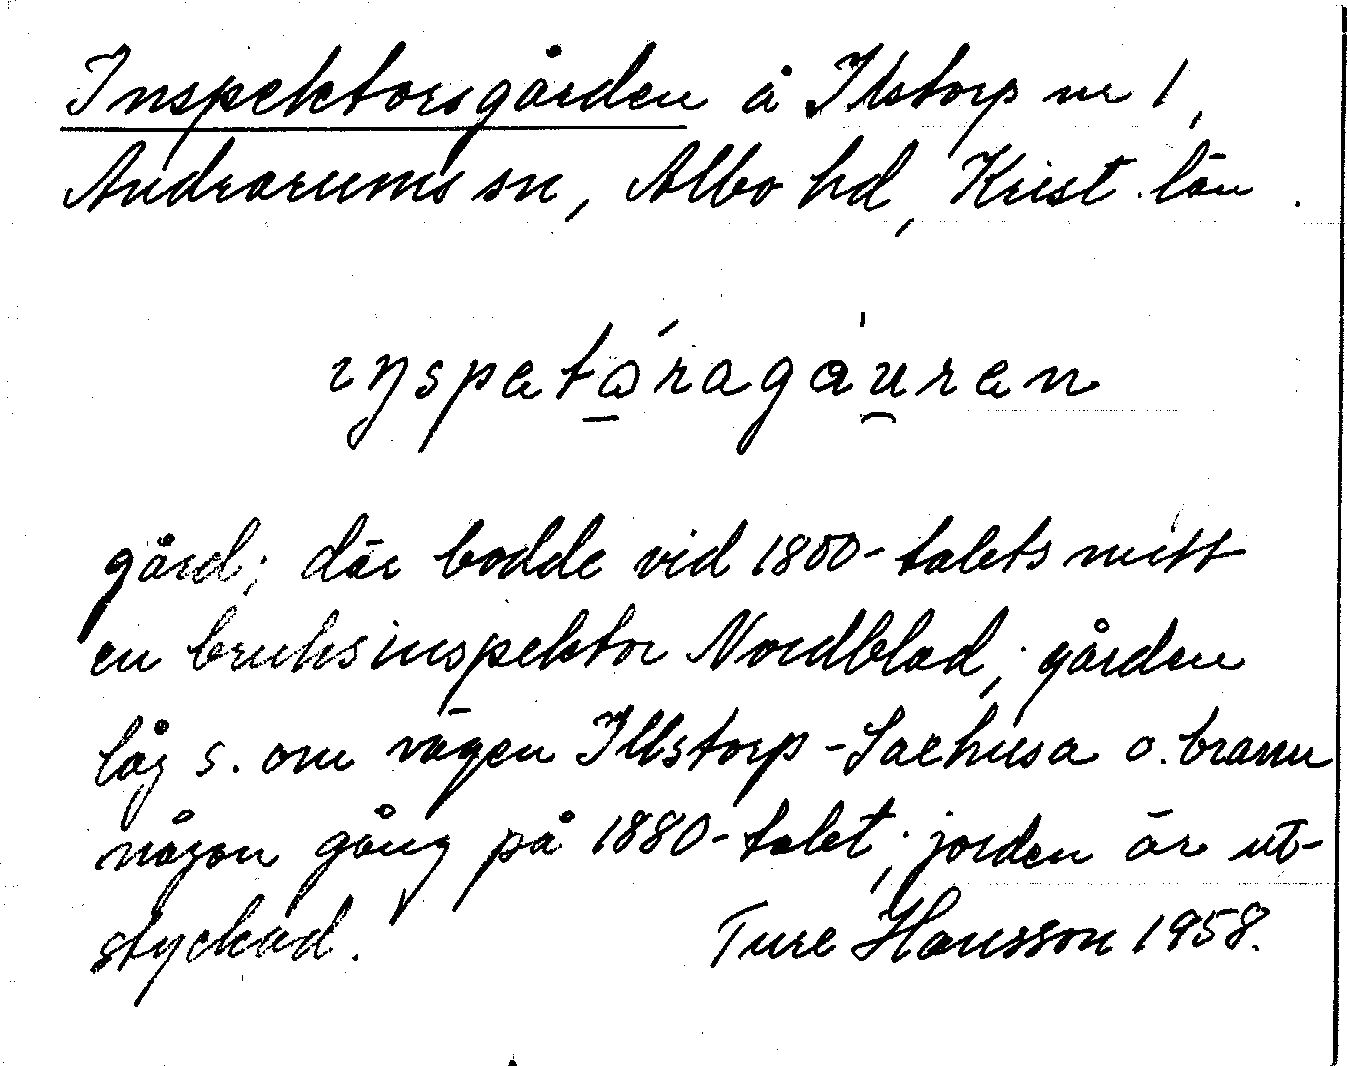 Inspektorsgården å Illstorp nr 1,
Andrarums sn, Albo hd, Krist. län.
ıŋspetώ̱ragáu̯ren
gård; där bodde vid 1800-talets mitt
en bruksinspektor Nordblad; gården
låg s. om vägen Illstorp-Laehusa o. brann
någon gång på 1880-talet; jorden är ut-
styckad. Ture Hansson 1958.